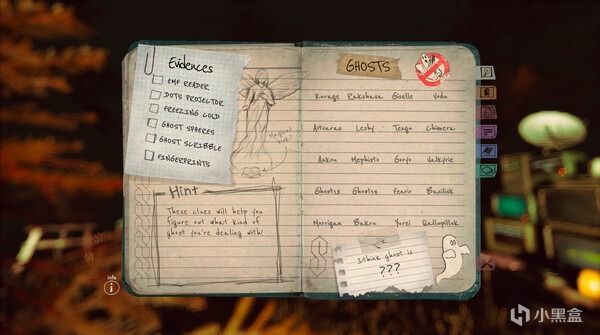 Evidences
EMF READER
DOTS PROJECTOR
FREEZING COLD
GHOST SPHERES
GHOST SCRIBBLE
FINGERPRINTS
Hint
These clues will help you
figure out what kind of
ghost you're dealing with!
info
GHOSTS
Kurage Rakshasa Giselle Vodu
Leshy Tengu Chimera
Ankou Mephisto Goryo Valkyrie
Ghosts13 Ghosts14 Fenrir Basilisk
Morrigan Bakru Yurei
I think ghost is
???
小黑盒